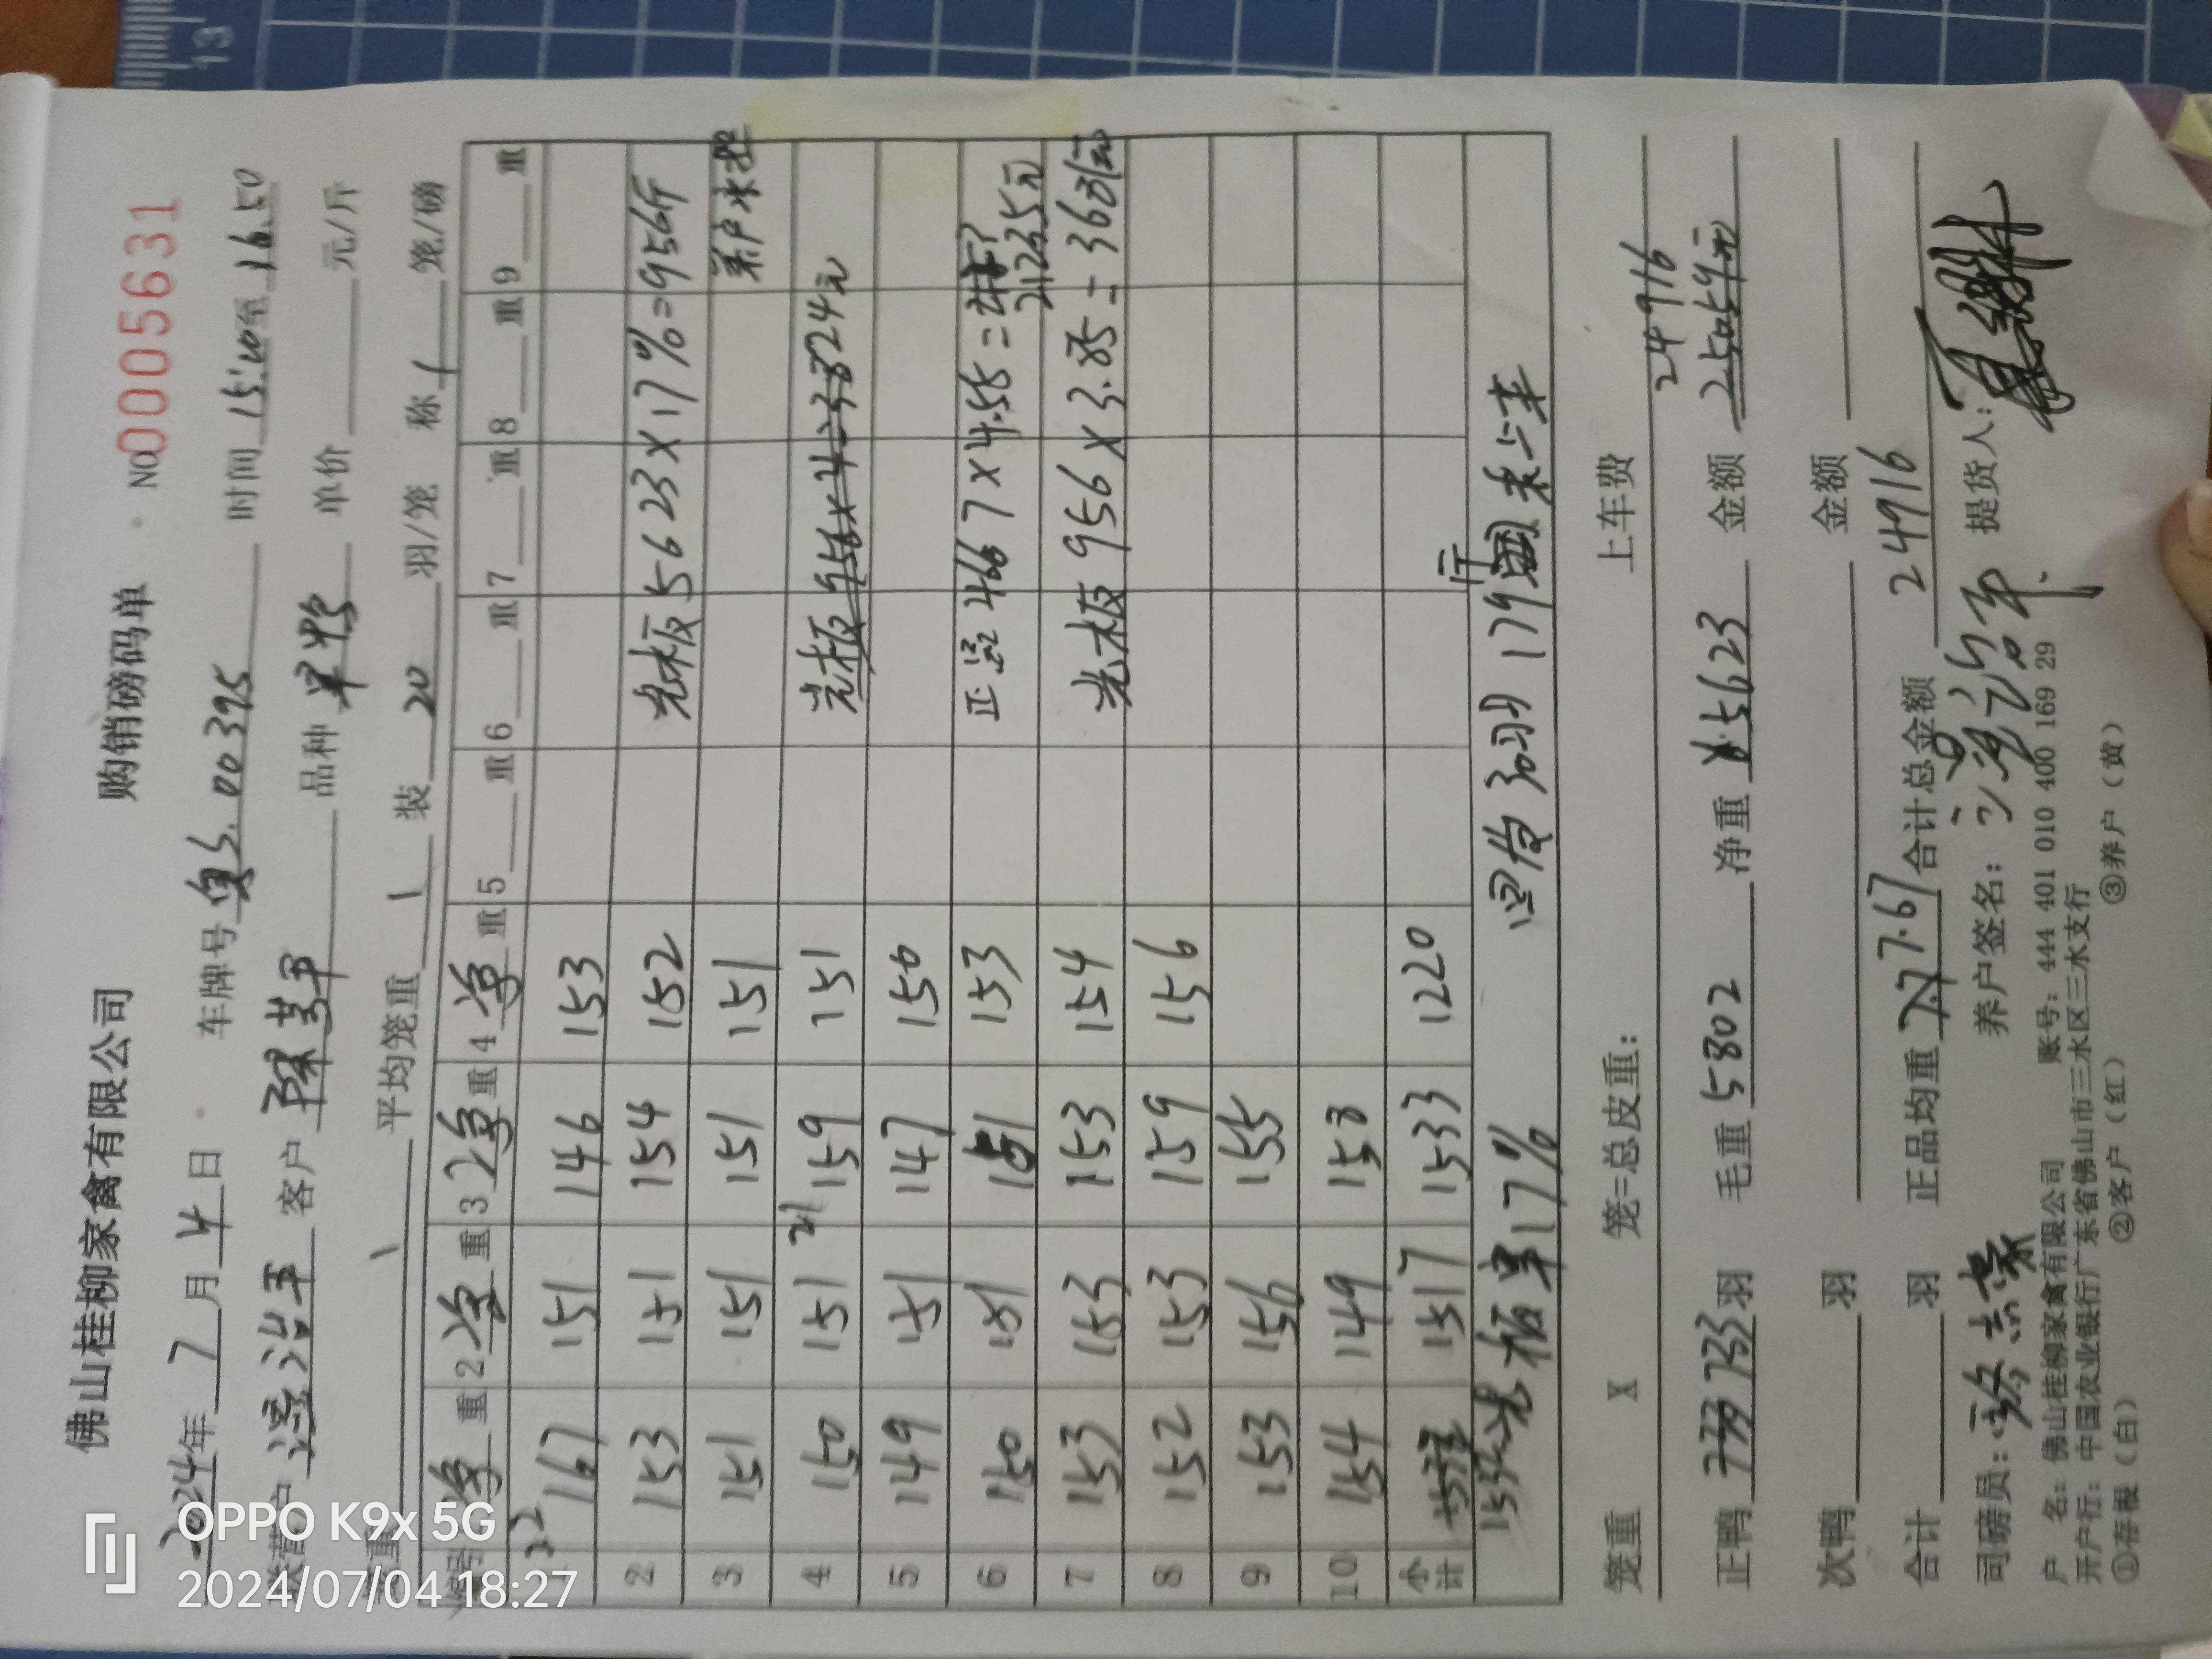 佛山桂柳家禽有限公司 购销磅码单 NO 0005631
2024年 7 月 4 日 车牌号 粤S.00395 时间 15:40至 16.50
户 客户 品种 单价 元/斤
平均笼重 1 装 20 羽/笼 称 1 笼/磅
编号 重 2 重 3 重 4 重 5 重 6 重 7 重 8 重 9 重
22 167 151 146 153
2 153 151 154 152 光板 5623×17%=956斤
3 151 151 151 151
4 150 151 21 159 151 光板 956×4=3824元
5 149 151 147 150
6 150 151 151 153 正品 4667×4.55= 21235元
7 153 153 153 154 光板 956×3.85=3681元
8 152 153 159 156
9 153 156 155
10 154 149 153
小计 1532 1517 1533 1220
光板率17% 30羽 179斤 未上车
笼重 X 笼=总皮重: 上车费
24916
正鸭 779 733 羽 毛重 5802 净重 5623 金额 25059元
次鸭 羽 金额
合计 羽 正品均重 7.67 合计总金额 24916
司磅员: 养户签名: 提货人:
户 名: 佛山桂柳家禽有限公司 账号: 444 401 010 400 169 29
开户行: 中国农业银行广东省佛山市三水区三水支行
①存根(白) ②客户(红) ③养户(黄)
OPPO K9x 5G
2024/07/04 18:27
13